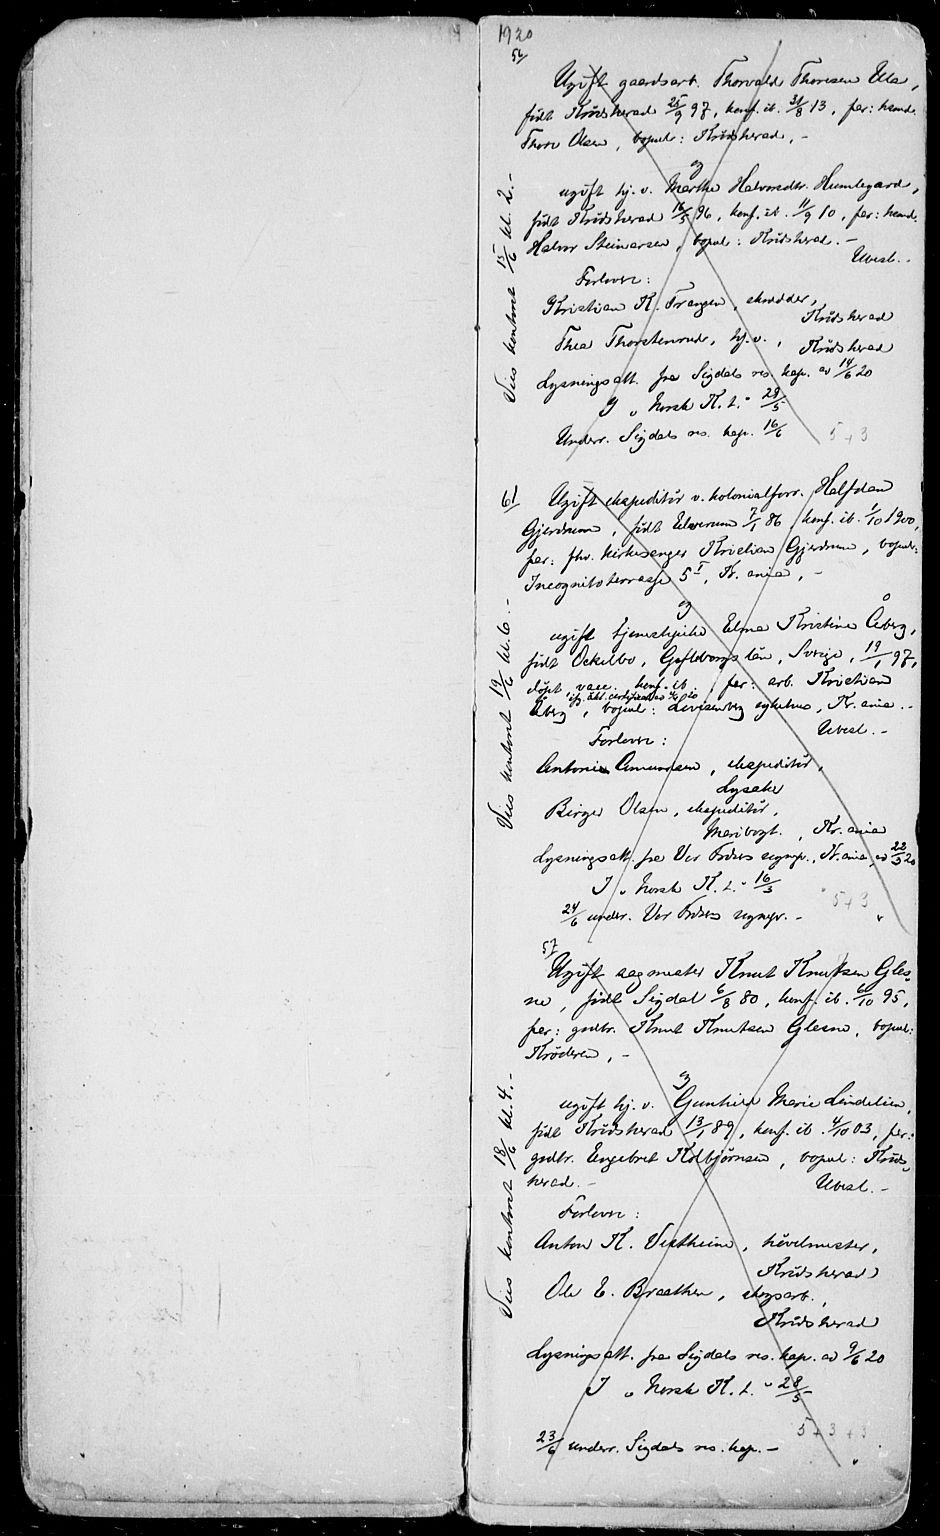 1920
56/
Ugift gaardsarb. Thorvald Thoresen Ula,
født Krødsherad 25/9 97, konf. ib. 31/8 13, for: handm.
Thore Olsen, bopæl: Krødsherad, -
og
ugift hj. v. Marthe Halvorsdtr. Humlegard,
født Krødsherad 16/5 96, konf. ib. 11/9 10, for: handm.
Halvor Steinarsen, bopæl: Krødsherad. -
Ubesl. -
Forlover:
Kristian K. Frangen, skrædder,
Krødsherad
Thea Thorstensrud, hj. v.,
Krødsherad
Lysningsatt. fra Sigdals res. kap. av 14/6 20
I „ Norsk K. t. " 28/5
Underr. Sigdals res. kap. 16/6
5 + 3
Vies kontoret 15/6 kl. 2. -
61
Ugift ekspeditør v. kolonialforr. Halfdan
Gjerdrum, født Elverum 7/1 86, konf. ib. 1/10 1900,
for: fhv. kirkesanger Kristian Gjerdrum, bopæl:
Incognitoterrasse 5 I, Kr.ania, -
og
ugift tjenestepike Elna Kristine Åberg,
født Ockelbo, Gefleborgs län, Sverige, 19/1 97,
døpt, vacc. konf. ib., for: arb. Kristian
Åberg, bopæl: Lovisenberg sykehus, Kr.ania. -
Ubesl. -
Forlover:
Antonie Amundsen, ekspeditør,
Lysaker
Birger Olsen, ekspeditør,
Maribogt. , Kr.ania
Lysningsatt. fra Vor Frelsers sognepr., Kr.ania, av 22/5 20
I „ Norsk K. t. " 16/3
24/6 underr. Vor Frelsers sognepr. -
5 + 3
Vies kontoret 19/6 kl. 6. -
57
Ugift sagmester Knut Knutsen Gles-
ne, født Sigdal 6/8 80, konf. ib. 6/10 95,
for: gndbr. Knut Knutsen Glesne, bopæl:
Krøderen, -
og
ugift hj. v. Gunhild Marie Lindelien,
født Krødsherad 13/1 89, konf. ib. 4/10 03, for:
gndbr. Engebret Kolbjørnsen, bopæl: Krøds-
herad. -
Ubesl. -
Forlover:
Anton K. Vestheim, høvelmester,
Krødsherad
Ole E. Braathen, skogsarb.,
Krødsherad
Lysningsatt. fra Sigdals res. kap. av 9/6 20
I „ Norsk K. t. " 28/5
23/6 underr. Sigdals res. kap. -
5 + 3 + 3
Vies kontoret 18/6 kl. 4. -